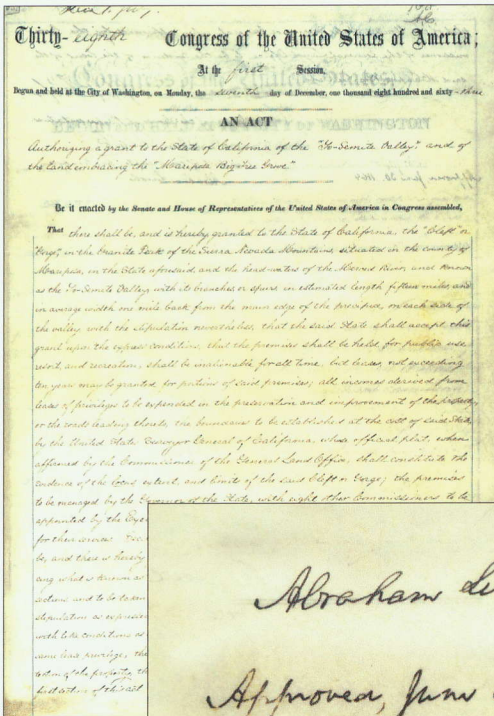 Thirty-eighth Congress of the United States of America;
At the first Session,
Begun and held at the City of Washington, on Monday, the seventh day of December, one thousand eight hundred and sixty-three
AN ACT
Authorizing a grant to the State of California of the "Yo-Semite Valley," and of
the Land embracing the "Mariposa Big Tree Grove."
Be it enacted by the Senate and House of Representatives of the United States of America in Congress assembled,
That there shall be, and is hereby granted to the State of California, the "Cleft" or
"Gorge," in the Granite Peak of the Sierra Nevada Mountains, situated in the county of
Mariposa, in the State aforesaid, and the head waters of the Merced River, and known
as the Yo-Semite Valley, with its branches or spurs in estimated length fifteen miles, and
in average width one mile back from the main edge of the precipice, on each side of
the valley, with the stipulation nevertheless, that the said State shall accept this
grant upon the express conditions, that the premises shall be held for public use
resort and recreation; shall be inalienable for all time, but leases, not exceeding
ten years may be granted for portions of said premises; all incomes derived from
leases of privileges to be expended in the preservation and improvement of the property
or the roads leading thereto; the boundaries to be established at the cost of said State
by the United States Surveyor General of California, whose official plat, when
affirmed by the Commissioner of the General Land Office, shall constitute the
evidence of the locus, extent, and limits of the said Cleft or Gorge; the premises
to be managed by the Governor of the State, with eight other Commissioners to be
appointed by the Exec
for their services.
be, and there is hereby
ing what is known as
section, and to be taken
stipulation as expressed
with like conditions as
same lease privilege, the
tection of the property, the
first section of this act
Abraham Li
Approved, June